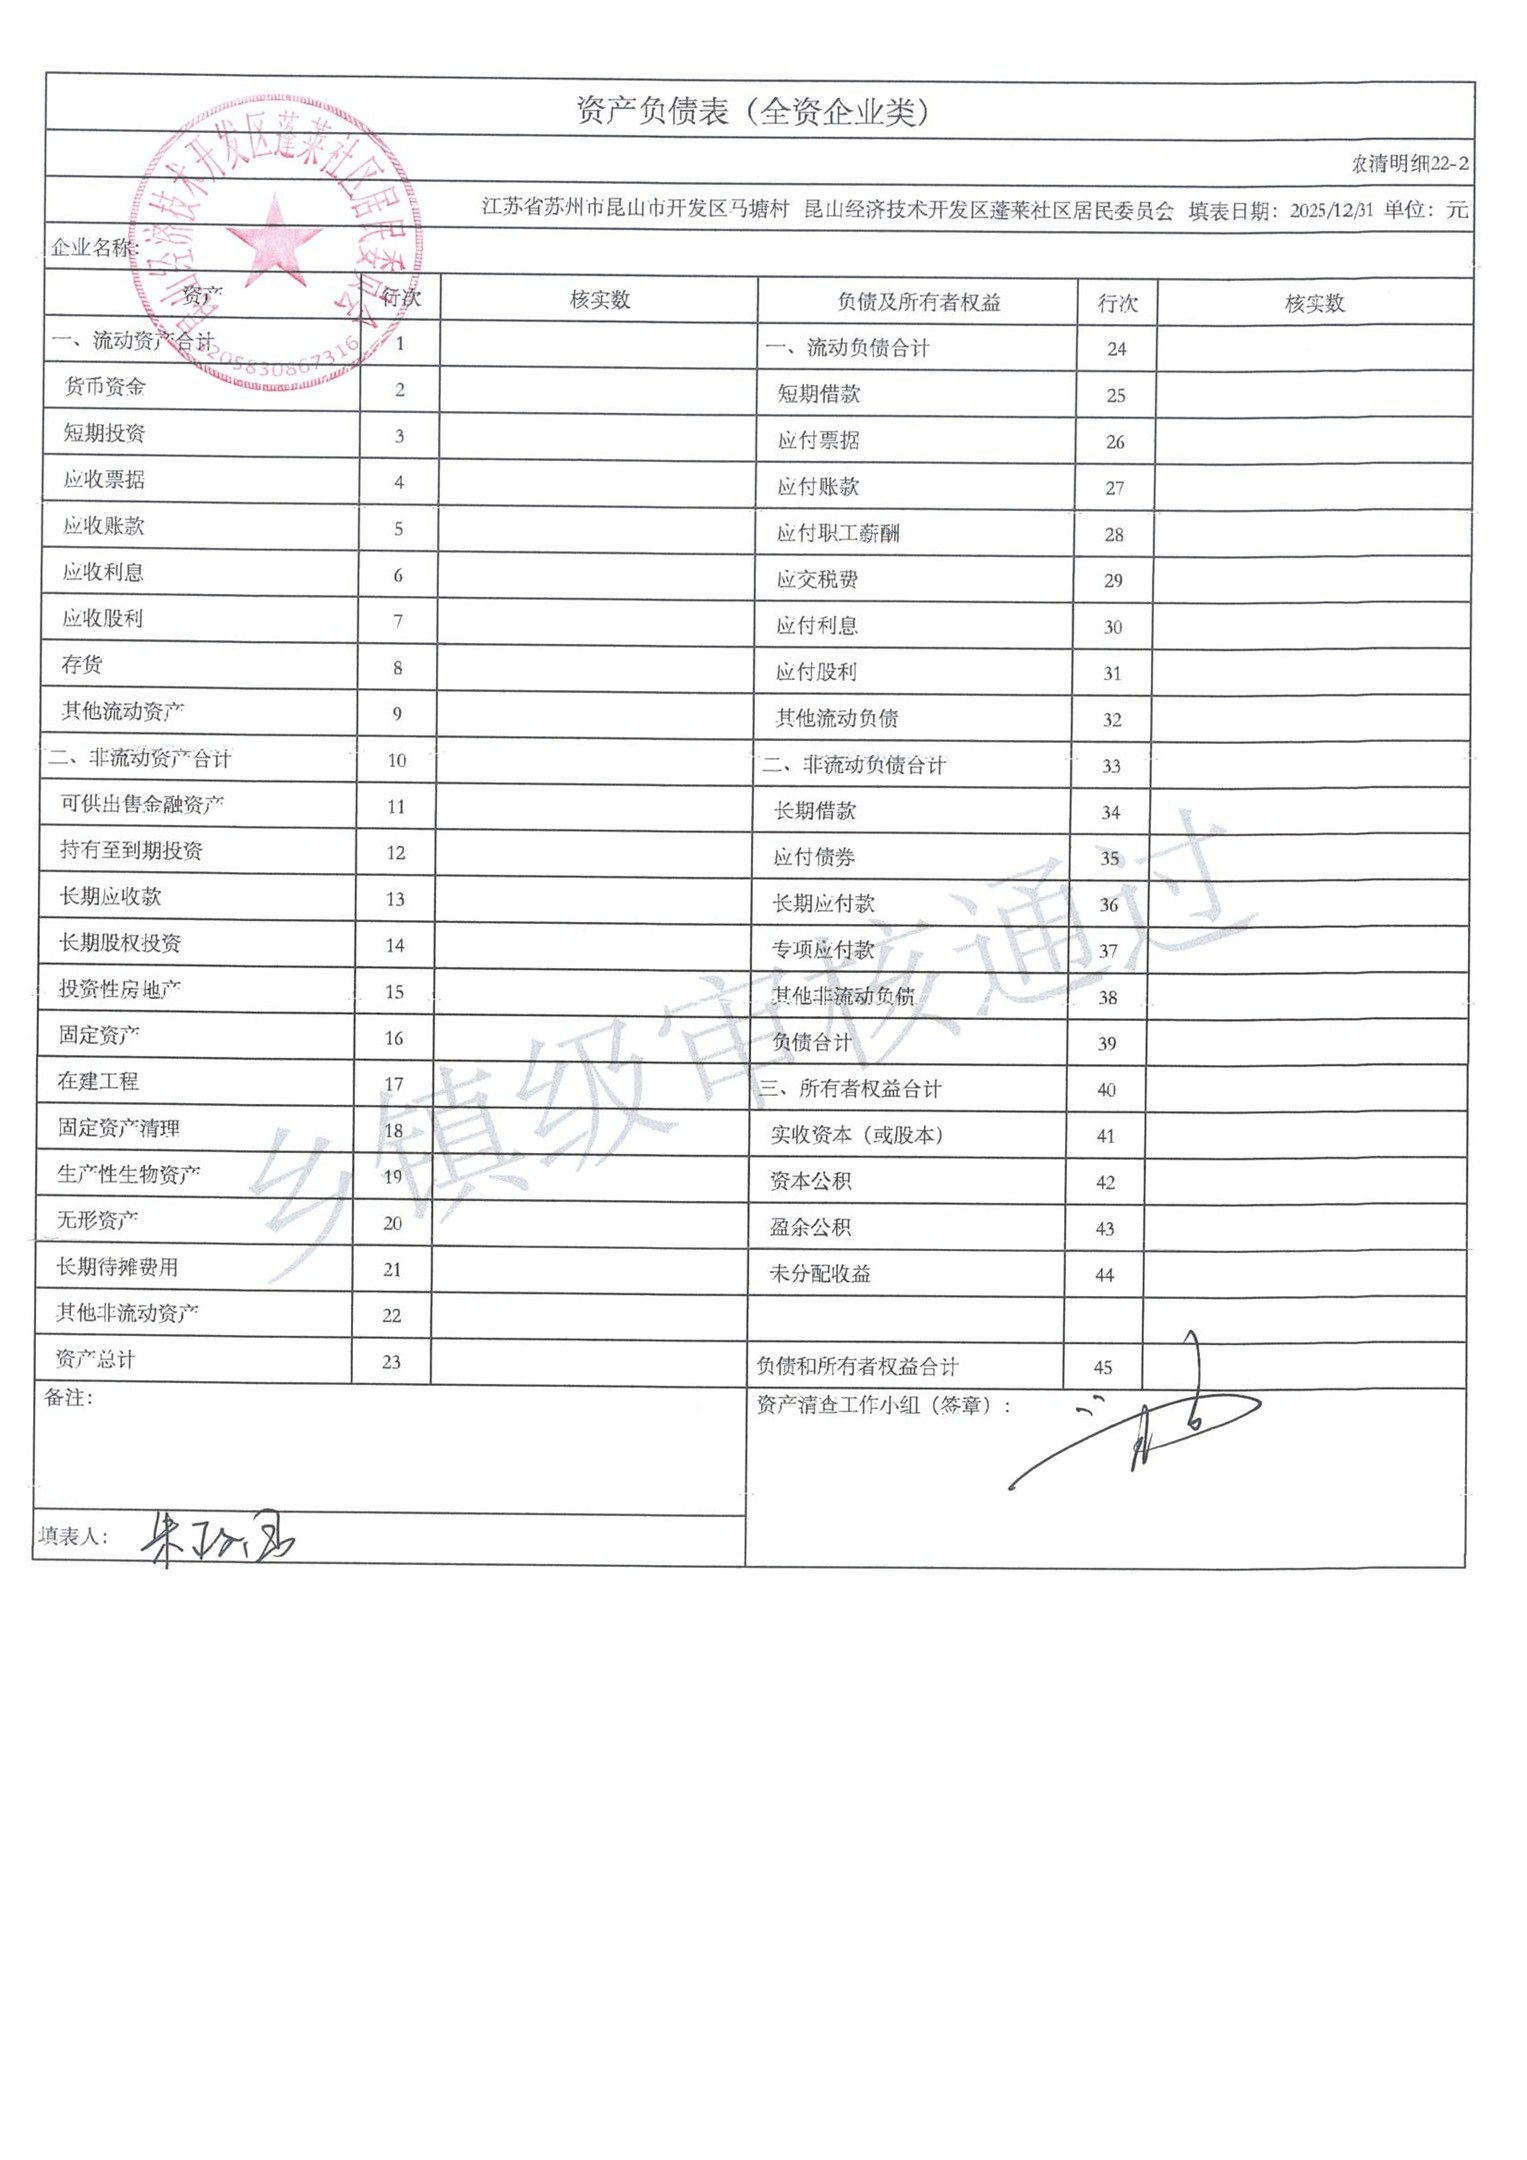 资产负债表（全资企业类）
农清明细22-2
江苏省苏州市昆山市开发区马塘村 昆山经济技术开发区蓬莱社区居民委员会 填表日期：2025/12/31 单位：元
企业名称：
昆山经济技术开发区蓬莱社区居民委员会
3205830867316
资产 行次 核实数 负债及所有者权益 行次 核实数
一、流动资产合计 1 一、流动负债合计 24
货币资金 2 短期借款 25
短期投资 3 应付票据 26
应收票据 4 应付账款 27
应收账款 5 应付职工薪酬 28
应收利息 6 应交税费 29
应收股利 7 应付利息 30
存货 8 应付股利 31
其他流动资产 9 其他流动负债 32
二、非流动资产合计 10 二、非流动负债合计 33
可供出售金融资产 11 长期借款 34
持有至到期投资 12 应付债券 35
长期应收款 13 长期应付款 36
长期股权投资 14 专项应付款 37
投资性房地产 15 其他非流动负债 38
固定资产 16 负债合计 39
在建工程 17 三、所有者权益合计 40
固定资产清理 18 实收资本（或股本） 41
生产性生物资产 19 资本公积 42
无形资产 20 盈余公积 43
长期待摊费用 21 未分配收益 44
其他非流动资产 22
资产总计 23 负债和所有者权益合计 45
乡镇级审核通过
备注： 资产清查工作小组（签章）：
填表人：